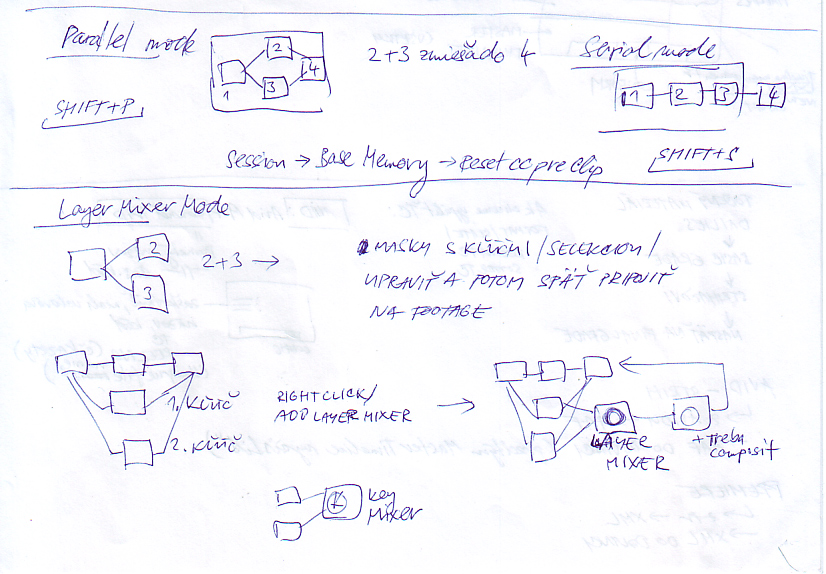 Parallel mode
SHIFT+P
1
2
3
4
2+3 zmieša do 4
Serial mode
1 2 3 4
SHIFT+S
Session → Base Memory → Reset CC pre Clip
Layer Mixer Mode
2
3
2+3 →
MASKY S KĽÚČMI / SELEKCIOU /
UPRAVIŤ A POTOM SPÄŤ PRIPOJIŤ
NA FOOTAGE
1. KĽÚČ
2. KĽÚČ
RIGHT CLICK/
ADD LAYER MIXER
LAYER
MIXER
+ treba
composit
key
Mixer